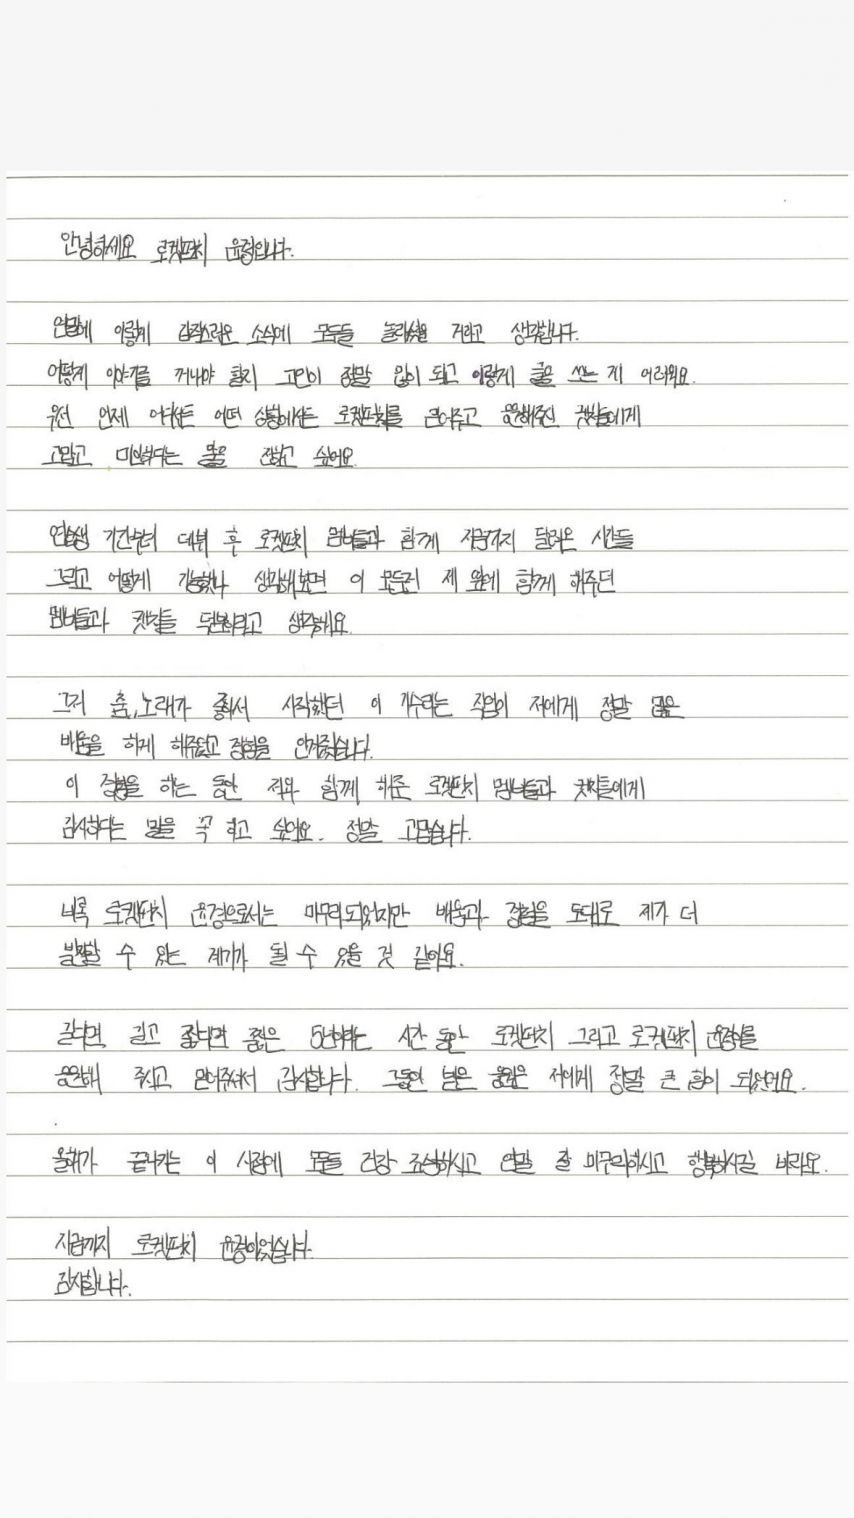 안녕하세요 로켓펀치 윤경입니다.
연말에 이렇게 갑작스러운 소식에 모두들 놀라셨을 거라고 생각합니다.
어떻게 이야기를 꺼내야 할지 고민이 정말 많이 되고 이렇게 글을 쓰는 게 어려워요.
우선 언제 어디서든 어떤 상황에서든 로켓펀치를 믿어주고 응원해주신 켓찌들에게
고맙고 미안하다는 말을 전하고 싶어요.
연습생 기간부터 데뷔 후 로켓펀치 멤버들과 함께 지금까지 달려온 시간들
그리고 어떻게 가능했나 생각해보면 이 모든건 제 옆에 함께 해주던
멤버들과 켓찌들 덕분이라고 생각해요.
그저 춤,노래가 좋아서 시작했던 이 가수라는 직업이 저에게 정말 많은
배움을 하게 해주었고 경험을 안겨줬습니다.
이 경험을 하는 동안 저와 함께 해준 로켓펀치 멤버들과 켓찌들에게
감사하다는 말을 꼭 하고 싶어요. 정말 고맙습니다.
비록 로켓펀치 윤경으로서는 마무리되었지만 배움과 경험을 토대로 제가 더
발전할 수 있는 계기가 될 수 있을 것 같아요.
길다면 길고 짧다면 짧은 5년이라는 시간 동안 로켓펀치 그리고 로켓펀치 윤경이를
응원해 주시고 믿어주셔서 감사합니다. 그동안 보내준 응원은 저에게 정말 큰 힘이 되었어요.
올해가 끝나가는 이 시점에 모두들 건강 조심하시고 연말 잘 마무리하시고 행복하시길 바라요.
지금까지 로켓펀치 윤경이었습니다.
감사합니다.